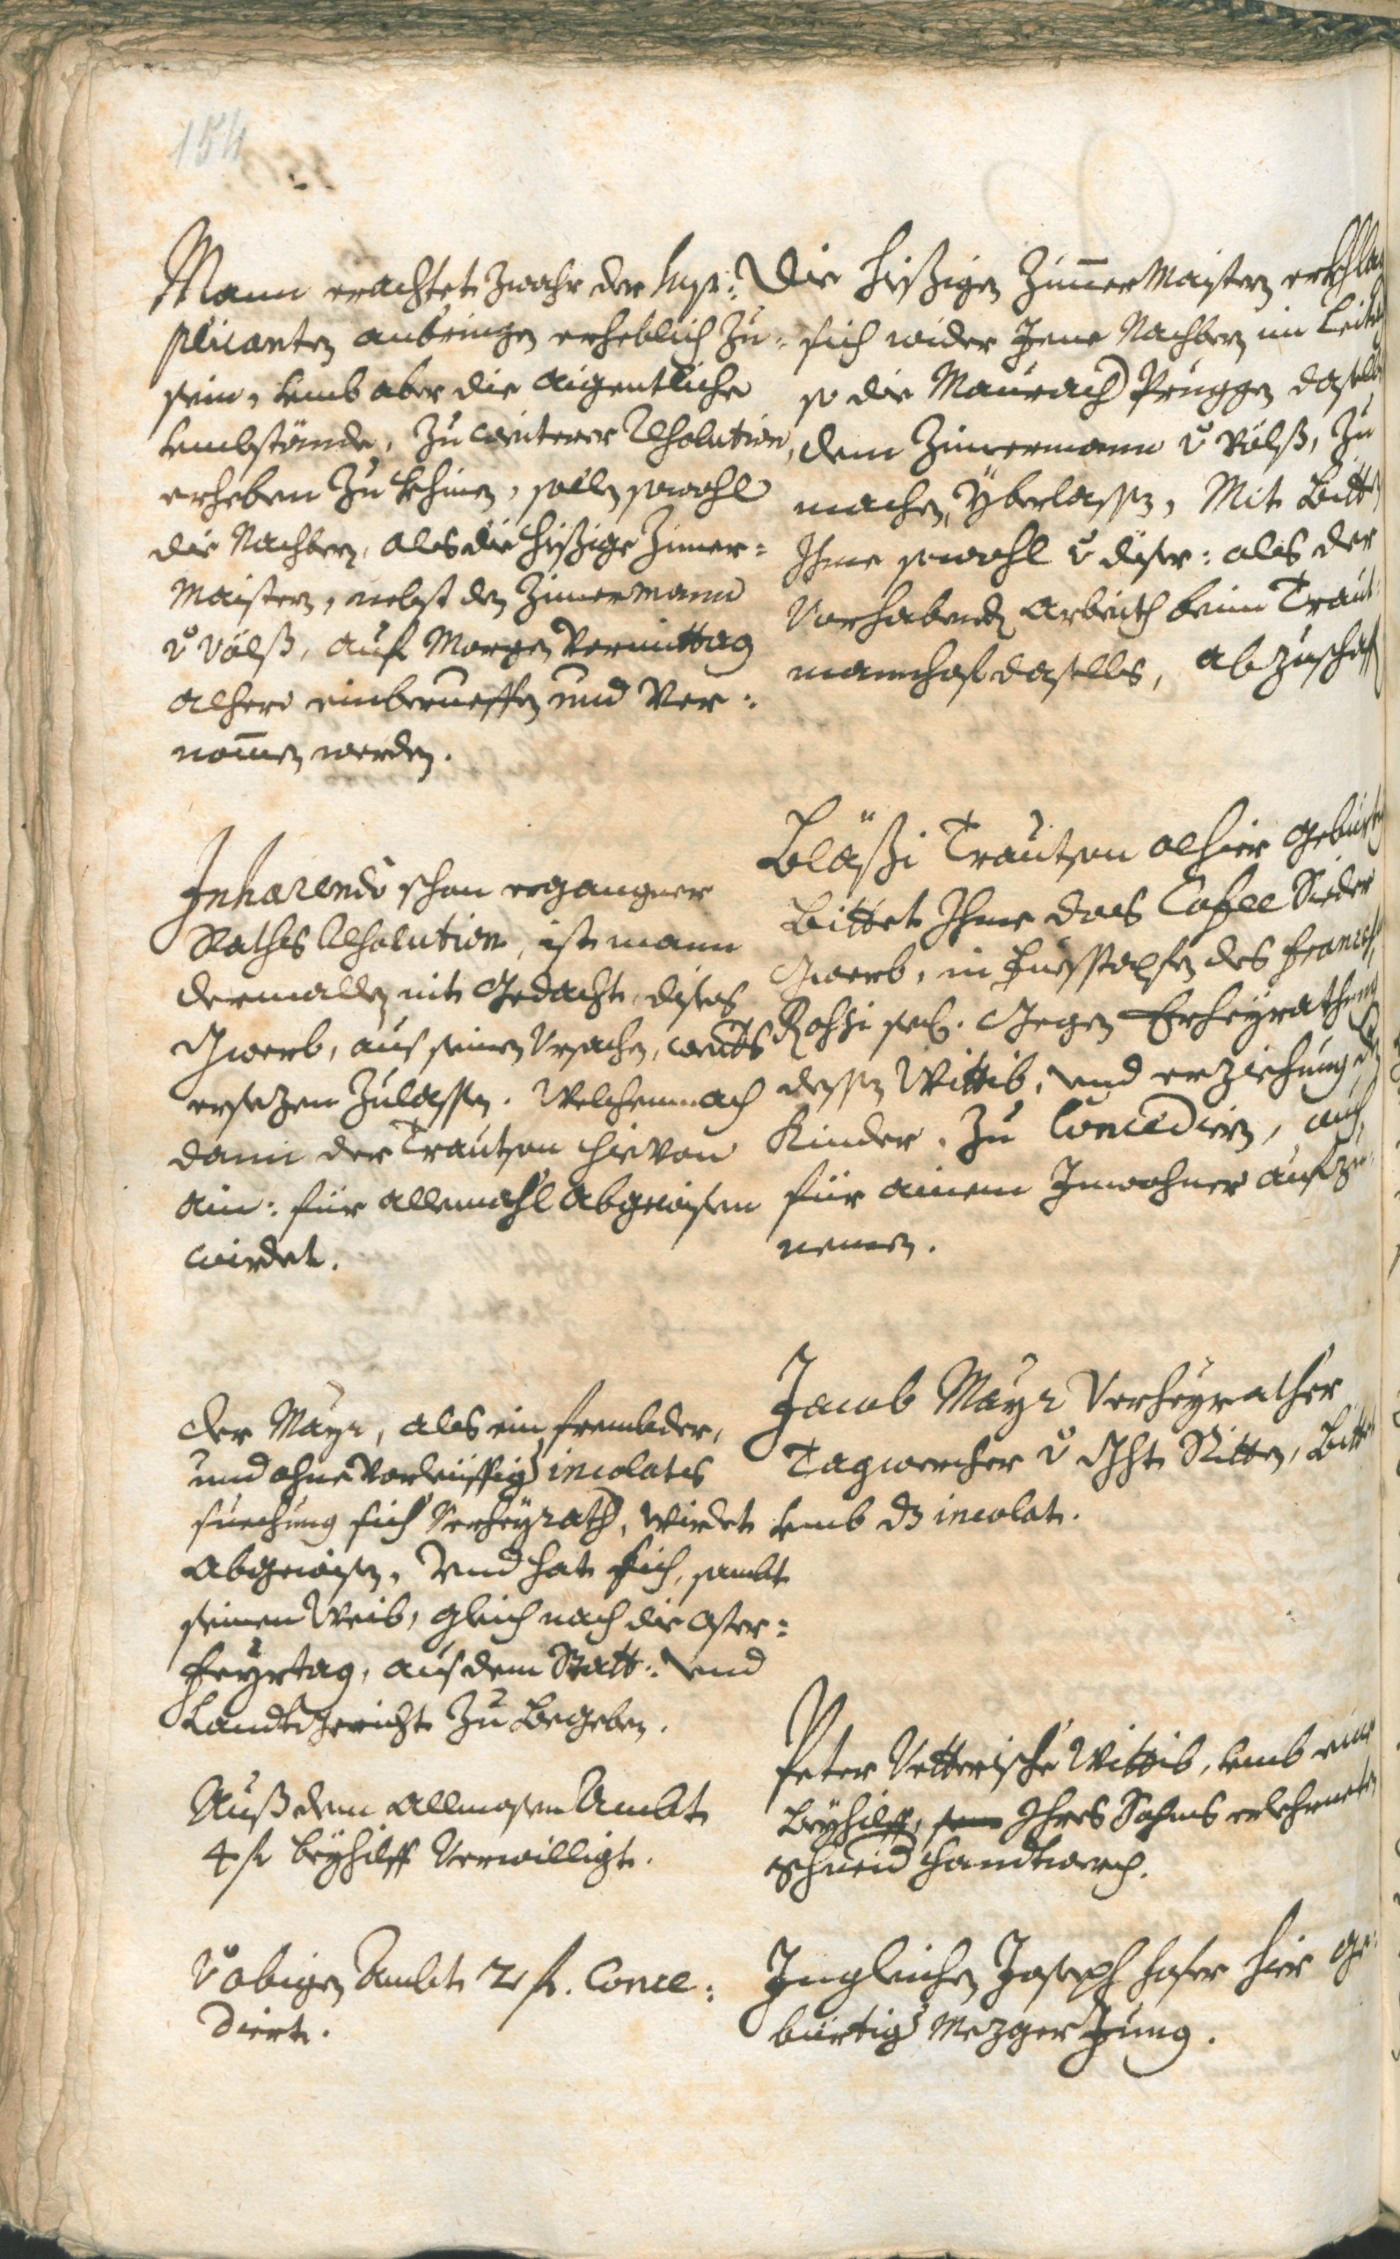 154
Mann erachtet zwahr der Sup:
plicanten anbringen erheblich zu
sein, umb aber die aigentliche
umbstände, zu weiterer Resolution,
erheben zu khinen, sollen sowohl
die Nachbern, als die hießige Zimer=
Maistern, nebst den Zimermann
v Völß, auf Morgen Vormittag
alhero einberueffen und Ver:
nomen werden.
Die hießigen Zimer Maistern erkhlag
sich wider Jene Nachbern im Leita
so die Maurach Pruggen daselbs
dem Zimermann v Völß, zu
machen, yberlassen, Mit Bitt
Ihme sowohl v diser: als der
Vorhabenden Arbeith beim Traut
mannhof daselbs, abzuschaff
Inhærendo schon ergangner
Raths Resolution, ist mann
dermallen nit Gedacht, dises
Gwerb, aus seinen Ursachen,
ersezen zulassen. Welchemnach
dann der Trautson hievon
ain: für allemahl abgewisen
wirdet.
Bläßi Trautson alhier Gebürt
Bittet Ihme das Cafee Sieder
Gwerb, in Fuesstapfen des Francesc
Rossi seel. Gegen Erheyrathung
dessen Wittib, und erziehung der
Kinder. zu Concedieren, auch
für ainem Inwohner aufzu
nemen.
Der Mayr, als ein frembder,
und ohne Vorleiffig incolats
suechung sich Verheyrath, wirdet
abgewisen, und hat sich, sambt
seinen Weib, gleich nach die Oster=
Feyrtag, aus dem Statt: und
Landtgericht zu Begeben.
Jacob Mayr Verheyrather
Tagwercher v Ghht Ritten, Bitt
umb ds incolat.
Auß dem Allmosen Ambt
4 f beyhilff Verwilligt.
Peter Vetterische Wittib, umb eine
Beyhilff, Ihres Sohns erlehrneten
Schneid handtwerch.
V obigen Ambt 2 f. Conce:
diert.
Ingleichen Joseph Hofer hier ge:
bürtig Mezger Jung.